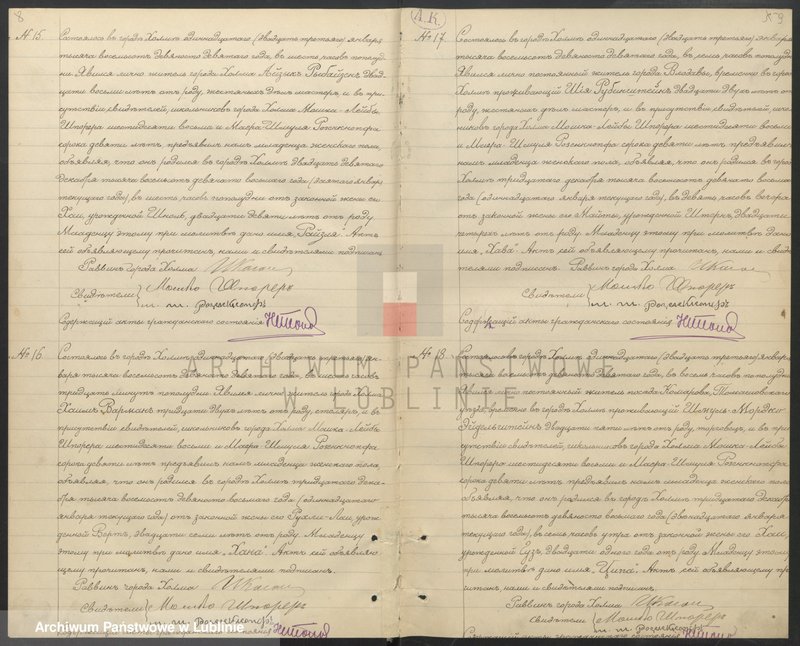 8
№ 15.
Состоялось въ городѣ Холмѣ одиннадцатаго (двадцать третьяго) января
тысяча восемьсотъ девяносто девятаго года, въ шесть часовъ пополуд-
ни. Явился лично житель города Холма
двад-
цати восьми лѣтъ отъ роду, жестяныхъ дѣлъ мастеръ, и въ при-
сутствіи свидѣтелей, школьниковъ города Холма Мошка-Лейбы
Шпорера шестидесяти восьми и Маера-Шмуля Розенкнопфа
сорока девяти лѣтъ, предъявилъ намъ младенца женскаго пола,
объявляя, что онъ родился въ городѣ Холмѣ двадцать девятаго
декабря тысяча восемьсотъ девяносто восьмаго года (десятаго января
текущаго года), въ шесть часовъ пополудни отъ законной жены его
Хаи, урожденной двадцати девяти лѣтъ отъ роду.
Младенцу этому при молитвѣ дано имя „Райзля“. Актъ
сей объявляющему прочитанъ, нами и свидѣтелями подписанъ.
Раввинъ города Холма
Свидѣтели Мошко Шпореръ
М. Ш. Розенкнопфъ
Содержащій акты гражданскаго состоянія
№ 16
Состоялось въ городѣ Холмѣ одиннадцатаго (двадцать третьяго) ян-
варя тысяча восемьсотъ девяносто девятаго года, въ шесть часовъ
тридцать минутъ пополудни. Явился лично житель города Холма
Хаимъ Варманъ, тридцати двухъ лѣтъ отъ роду, столяръ, и въ
присутствіи свидѣтелей, школьниковъ города Холма Мошка-Лейбы
Шпорера шестидесяти восьми и Маера-Шмуля Розенкнопфа
сорока девяти лѣтъ предъявилъ намъ младенца женскаго пола,
объявляя, что онъ родился въ городѣ Холмѣ тридцатаго дека-
бря тысяча восемьсотъ девяносто восьмаго года (одиннадцатаго
января текущаго года) отъ законной жены его Рухли-Леи, урож-
денной Вортъ, двадцати семи лѣтъ отъ роду. Младенцу
этому при молитвѣ дано имя „Хана“. Актъ сей объявляю-
щему прочитанъ, нами и свидѣтелями подписанъ.
Раввинъ города Холма
Свидѣтели Мошко Шпореръ
М. Ш. Розенкнопфъ
A.K.
9
№ 17
Состоялось въ городѣ Холмѣ одиннадцатаго (двадцать третьяго) января
тысяча восемьсотъ девяносто девятаго года, въ семь часовъ пополудни.
Явился лично постоянный житель города Влодавы, временно въ горо-
Холмѣ проживающій Шія Рубинштейнъ, двадцати двухъ лѣтъ отъ
роду, жестяныхъ дѣлъ мастеръ, и въ присутствіи свидѣтелей, школь-
никовъ города Холма Мошка-Лейбы Шпорера шестидесяти восьми
и Маера-Шмуля Розенкнопфа сорока девяти лѣтъ предъявилъ
намъ младенца женскаго пола, объявляя, что онъ родился въ городѣ
Холмѣ тридцатаго декабря тысяча восемьсотъ девяносто восьмаго
года (одиннадцатаго января текущаго года), въ девять часовъ вечера
отъ законной жены его Майты, урожденной Штернъ, двадцати
четырехъ лѣтъ отъ роду. Младенцу этому при молитвѣ дано
имя „Хава“. Актъ сей объявляющему прочитанъ, нами и свидѣ-
телями подписанъ. Раввинъ города Холма
Свидѣтели Мошко Шпореръ
М. Ш. Розенкнопфъ
Содержащій акты гражданскаго состоянія
№ 18
Состоялось въ городѣ Холмѣ одиннадцатаго (двадцать третьяго) января
тысяча восемьсотъ девяносто девятаго года, въ восемь часовъ пополудни.
Явился лично постоянный житель посада Комарова, Томашовскаго
уѣзда, временно въ городѣ Холмѣ проживающій Шмуль-Мордко
Эйдельштейнъ, двадцати пяти лѣтъ отъ роду, торговецъ, и въ при-
сутствіи свидѣтелей, школьниковъ города Холма Мошка-Лейбы
Шпорера шестидесяти восьми и Маера-Шмуля Розенкнопфа
сорока девяти лѣтъ предъявилъ намъ младенца женскаго пола,
объявляя, что онъ родился въ городѣ Холмѣ тридцатаго декабря
тысяча восемьсотъ девяносто восьмаго года (одиннадцатаго января
текущаго года), въ семь часовъ утра отъ законной жены его Хаи,
урожденной двадцати одного года отъ роду. Младенцу этому
при молитвѣ дано имя „Ципа“. Актъ сей объявляющему про-
читанъ, нами и свидѣтелями подписанъ.
Раввинъ города Холма
Свидѣтели Мошко Шпореръ
М. Ш. Розенкнопфъ
Содержащій акты гражданскаго состоянія
ARCHIWUM PAŃSTWOWE
W LUBLINIE
Archiwum Państwowe w Lublinie